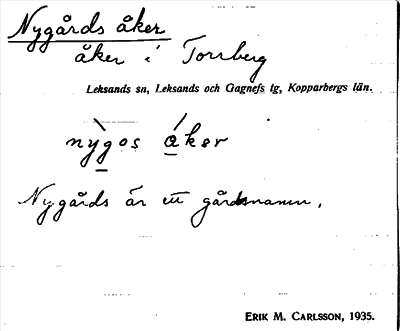 Nygårds åker
åker i Torrberg
Leksands sn, Leksands och Gagnefs tg, Kopparbergs län.
nỳgos áker
Nygårds är ett gårdsnamn.
ERIK M. CARLSSON, 1935.